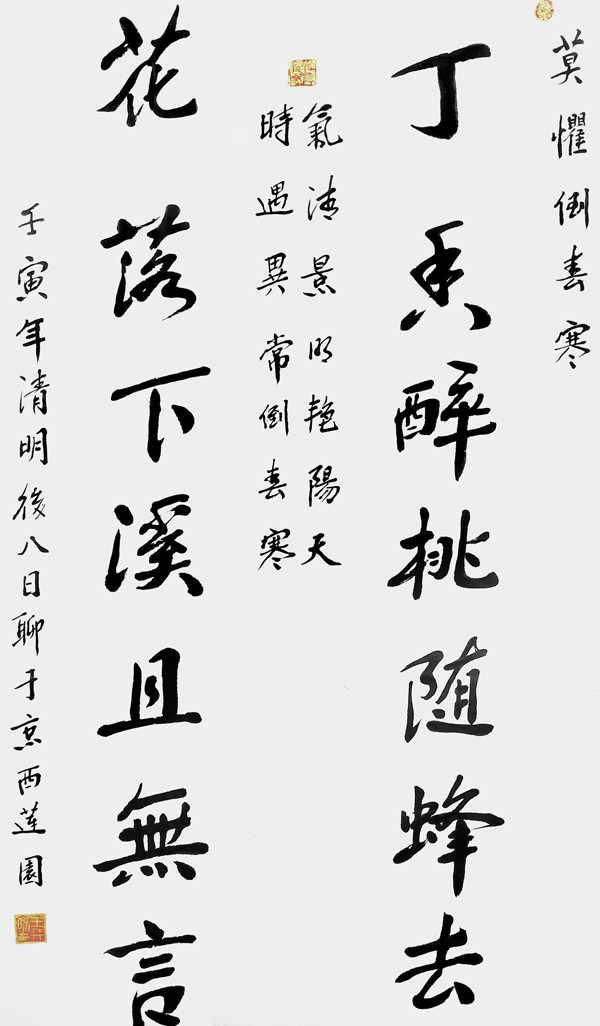 莫懼倒春寒
丁香醉桃随蜂去
氣清景明艳陽天
時遇異常倒春寒
花落下溪且無言
壬寅年清明後八日聊于京西蓮園